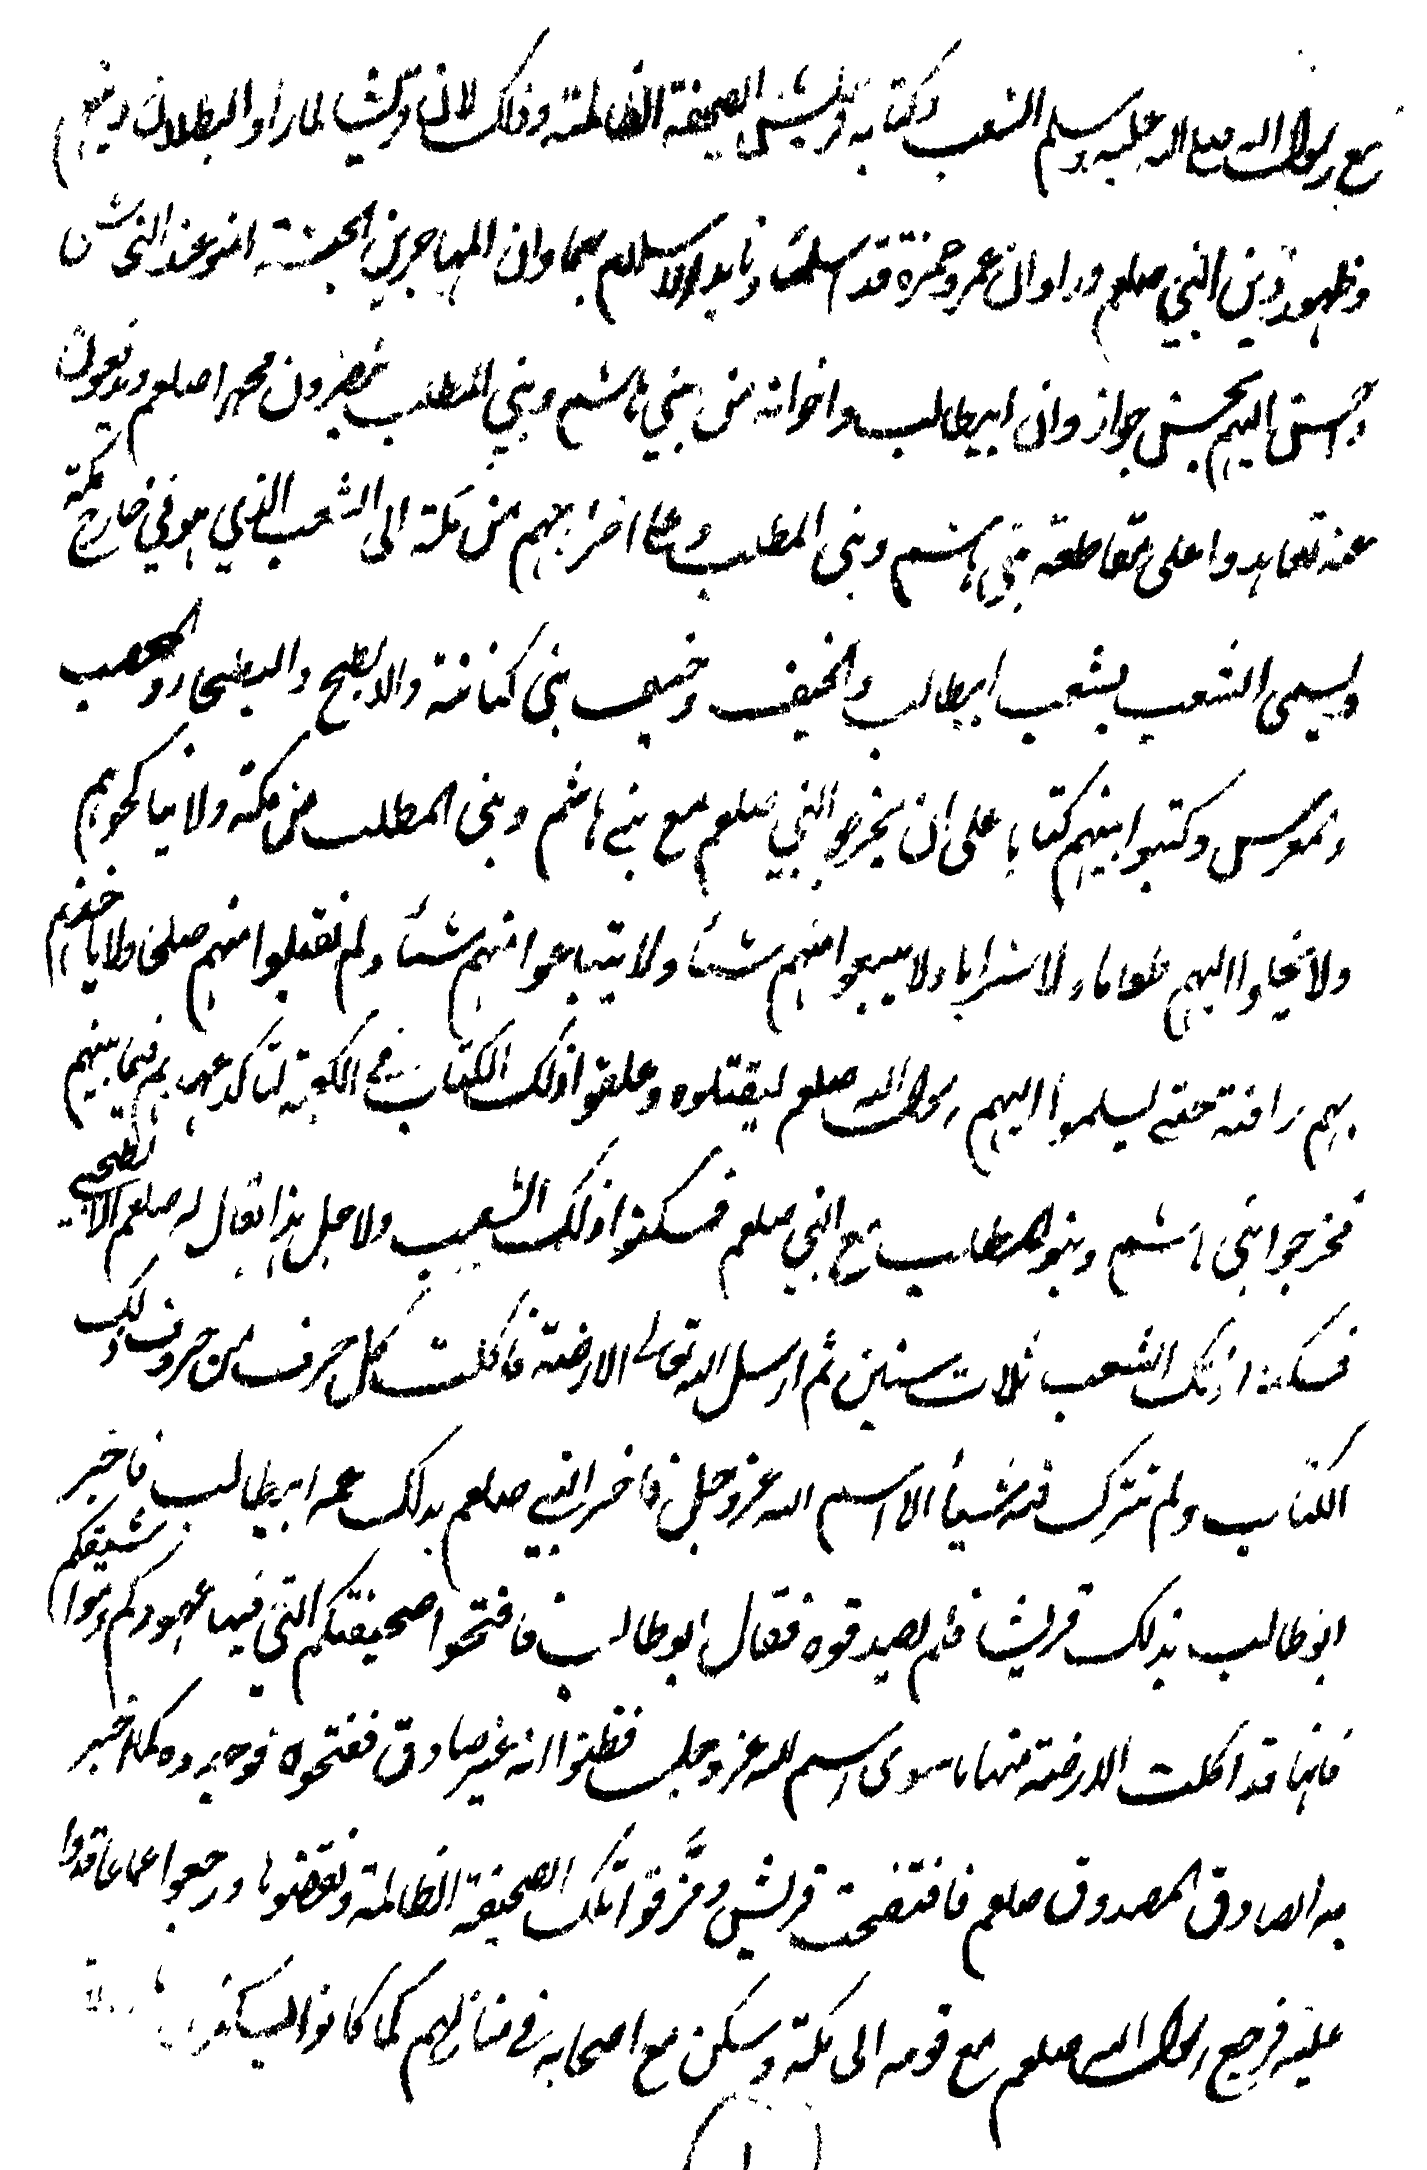 مع رسول الله صلى الله عليه وسلم الشعب وكتابة قريش الصحيفة الظالمة وذلك لان قريشا لما راوا البطلان دينهم
وظهور دين النبي صلعم وراوا ان عمر وحمزة قد اسلما وتايد الاسلام بهما وان المهاجرين الحبشة امنو عند النجاشي
واحسن اليهم بحسن جوار وان ابيطالب واخوانه من بني هاشم وبني المطلب ينصرون محمدا صلعم ويدفعون
عنه تعاهدوا على مقاطعة بني هاشم وبنى المطلب وعلى اخراجهم من مكة الى الشعب الذي هو في خارج مكة
ويسمى الشعب بشعب ابيطالب والخيف وخيف بنى كنانة والابطح والبطحاء والمحصب
والمعرس وكتبوا بينهم كتابا على ان يخرجوا النبي صلعم مع بني هاشم وبنى المطلب من مكة ولا يناكحوهم
ولا يخلوا اليهم طعاما ولا شرابا ولا يبيعوا منهم شيأ ولا يتباعوا منهم شيأ ولم يقبلوا منهم صلحا
بهم رافة حتى يسلموا اليهم رسول الله صلعم ليقتلوه وعلقوا ذلك الكتاب في الكعبة لتاكد عهدهم فيما بينهم
فخرجوا بنى هاشم وبنو المطلب مع النبي صلعم فسكنوا ذلك الشعب ولاجل هذا يقال له صلعم الابطحي
فسكنوا ذلك الشعب ثلاث سنين ثم ارسل الله تعالى الارضة فاكلت كل حرف من حروف ذلك
الكتاب ولم تترك فيه شيأ الا اسم الله عز وجل فاخبر النبي صلعم بذلك عمه ابيطالب فاخبر
ابو طالب بذلك قريشا فلم يصدقوه فقال ابو طالب فافتحوا صحيفتكم التي فيها عهودكم
فانها قد اكلت الارضة منها ما سوى اسم الله عز وجل فظنوا انه غير صادق ففتحوه فوجدوه كما اخبر
به الصادق المصدوق صلعم فافتضحت قريش ومزقوا تلك الصحيفة الظالمة ونقضوها ورجعوا عما عاقدوا
عليه فرجع رسول الله صلعم مع قومه الى مكة وسكن مع اصحابه في منازلهم كما كانوا يسكنون